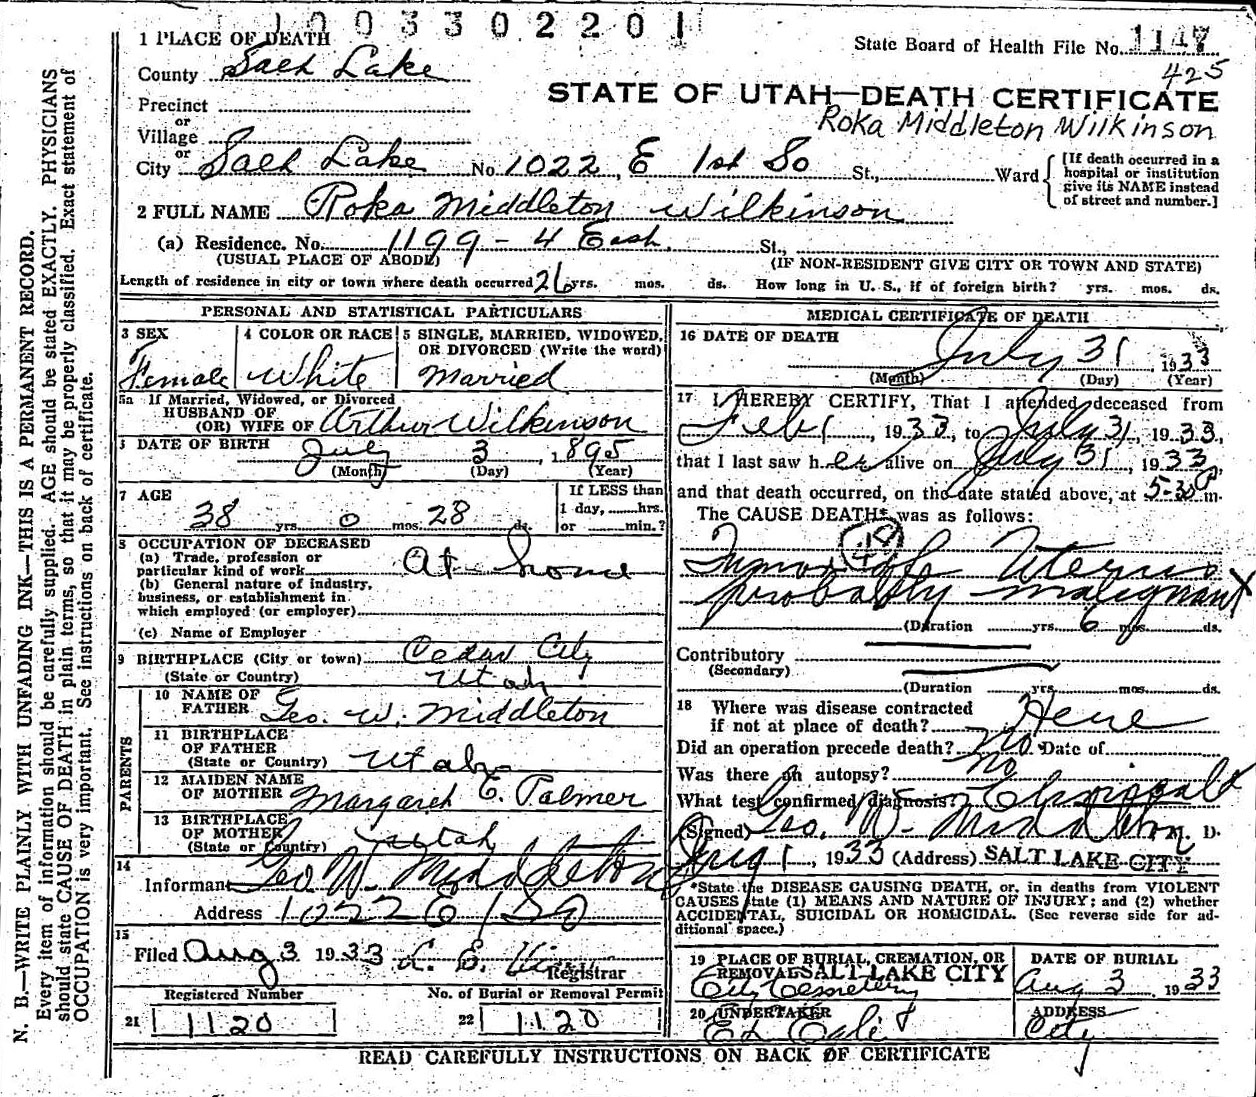 1003302201
1 PLACE OF DEATH
State Board of Health File No. 1147
County Salt Lake
425
STATE OF UTAH—DEATH CERTIFICATE
Precinct
or
Roka Middleton Wilkinson
Village
or
City Salt Lake No. 1022, E 1st So St., Ward
[If death occurred in a
hospital or institution
give its NAME instead
of street and number.]
2 FULL NAME Roka Middleton Wilkinson
(a) Residence. No. 1199 - 4 East St.,
(USUAL PLACE OF ABODE) (IF NON-RESIDENT GIVE CITY OR TOWN AND STATE)
Length of residence in city or town where death occurred 26 yrs. mos. ds. How long in U. S., if of foreign birth? yrs. mos. ds.
PERSONAL AND STATISTICAL PARTICULARS
3 SEX
Female
4 COLOR OR RACE
White
5 SINGLE, MARRIED, WIDOWED,
OR DIVORCED (Write the word)
Married
5a If Married, Widowed, or Divorced
HUSBAND OF
(OR) WIFE OF Arthur Wilkinson
DATE OF BIRTH July 3, 1895
(Month) (Day) (Year)
7 AGE
38 yrs. 0 mos. 28 ds.
If LESS than
1 day, ......hrs.
or ......min.?
8 OCCUPATION OF DECEASED
(a) Trade, profession or
particular kind of work At home
(b) General nature of industry,
business, or establishment in
which employed (or employer)
(c) Name of Employer
9 BIRTHPLACE (City or town) Cedar City
(State or Country) Utah
PARENTS
10 NAME OF
FATHER Geo. W. Middleton
11 BIRTHPLACE
OF FATHER
(State or Country) Utah
12 MAIDEN NAME
OF MOTHER Margaret E. Palmer
13 BIRTHPLACE
OF MOTHER
(State or Country) Utah
14
Informant Geo W. Middleton
Address 1022 E 1 So
15
Filed Aug 3 1933
Registrar
Registered Number
21 1120
No. of Burial or Removal Permit
22 1120
MEDICAL CERTIFICATE OF DEATH
16 DATE OF DEATH
July 31, 1933
(Month) (Day) (Year)
17 I HEREBY CERTIFY, That I attended deceased from
Feb 1, 1933, to July 31, 1933,
that I last saw her alive on July 31, 1933,
and that death occurred, on the date stated above, at 5-30 P m.
The CAUSE DEATH* was as follows:
48
Uterus
probably malignant X
(Duration yrs. 6 mos. ds.
Contributory
(Secondary)
(Duration yrs. mos. ds.
18 Where was disease contracted
if not at place of death? Here
Did an operation precede death? No. Date of
Was there an autopsy? No
What test confirmed diagnosis?
(Signed) Geo. W. Middleton M. D.
Aug 1, 1933 (Address) SALT LAKE CITY
*State the DISEASE CAUSING DEATH, or, in deaths from VIOLENT
CAUSES state (1) MEANS AND NATURE OF INJURY; and (2) whether
ACCIDENTAL, SUICIDAL OR HOMICIDAL. (See reverse side for ad-
ditional space.)
19 PLACE OF BURIAL, CREMATION, OR
REMOVAL SALT LAKE CITY
City Cemetery
DATE OF BURIAL
Aug 3, 1933
20 UNDERTAKER
ADDRESS
City
READ CAREFULLY INSTRUCTIONS ON BACK OF CERTIFICATE
N. B.—WRITE PLAINLY WITH UNFADING INK—THIS IS A PERMANENT RECORD.
Every item of information should be carefully supplied. AGE should be stated EXACTLY. PHYSICIANS
should state CAUSE OF DEATH in plain terms, so that it may be properly classified. Exact statement of
OCCUPATION is very important. See instructions on back of certificate.